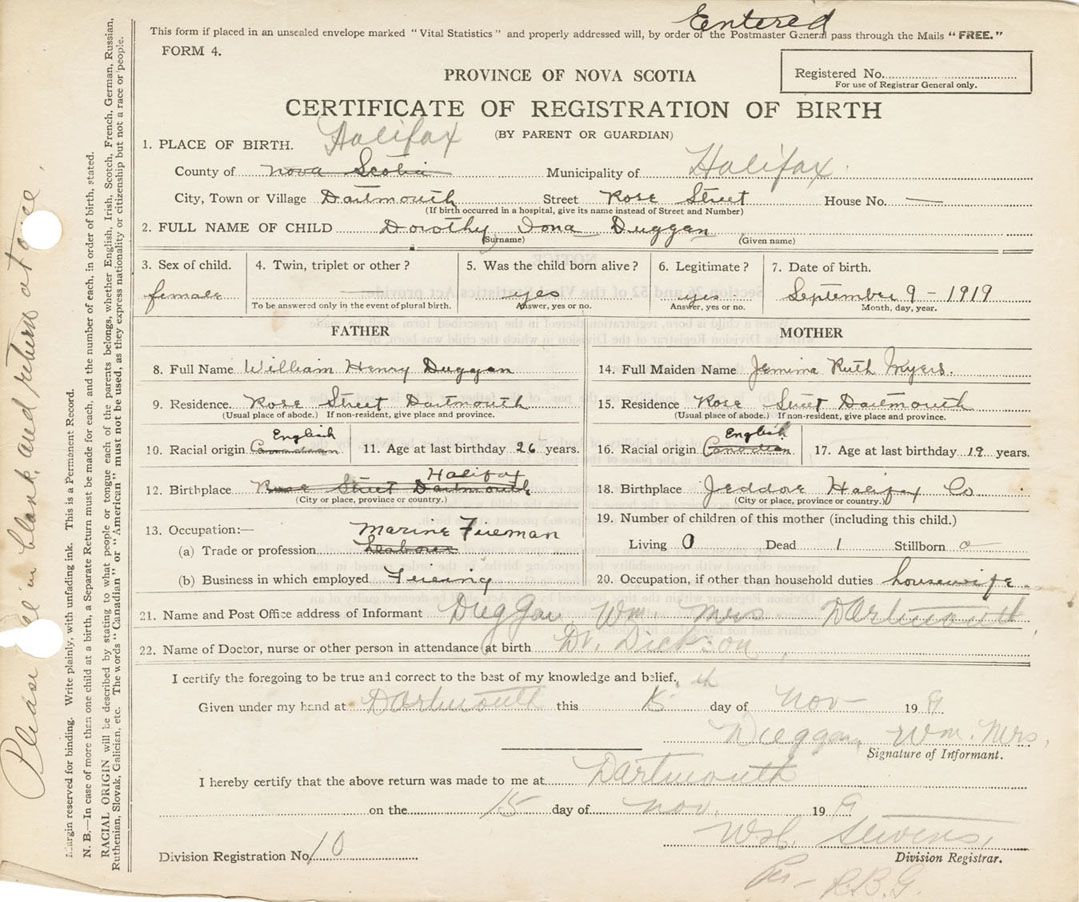 Entered
This form if placed in an unsealed envelope marked "Vital Statistics" and properly addressed will, by order of the Postmaster General pass through the Mails "FREE."
FORM 4.
PROVINCE OF NOVA SCOTIA
Registered No.
For use of Registrar General only.
CERTIFICATE OF REGISTRATION OF BIRTH
(BY PARENT OR GUARDIAN)
1. PLACE OF BIRTH. Halifax
County of Nova Scotia Municipality of Halifax.
City, Town or Village Dartmouth Street Rose Street House No. —
(If birth occurred in a hospital, give its name instead of Street and Number)
2. FULL NAME OF CHILD Dorothy Iona Duggan
(Surname) (Given name)
3. Sex of child. 4. Twin, triplet or other? 5. Was the child born alive? 6. Legitimate? 7. Date of birth.
female — yes yes September 9 - 1919
To be answered only in the event of plural birth. Answer, yes or no. Answer, yes or no. Month, day, year.
FATHER MOTHER
8. Full Name William Henry Duggan 14. Full Maiden Name Jemima Ruth Myers.
9. Residence. Rose Street Dartmouth 15. Residence Rose Street Dartmouth
(Usual place of abode.) If non-resident, give place and province. (Usual place of abode.) If non-resident, give place and province.
English English
10. Racial origin Canadian 11. Age at last birthday 26 years. 16. Racial origin Canadian 17. Age at last birthday 19 years.
Halifax
12. Birthplace Rose Street Dartmouth 18. Birthplace Jeddore Halifax Co
(City or place, province or country.) (City or place, province or country.)
13. Occupation:— Marine Fireman 19. Number of children of this mother (including this child.)
(a) Trade or profession Laborer Living 0 Dead 1 Stillborn 0
(b) Business in which employed Firing 20. Occupation, if other than household duties housewife.
21. Name and Post Office address of Informant Duggan, Wm. Mrs Dartmouth
22. Name of Doctor, nurse or other person in attendance at birth Dr. Dickson.
I certify the foregoing to be true and correct to the best of my knowledge and belief.
Given under my hand at Dartmouth this 15th day of Nov- 199
Duggan, Wm. Mrs.
Signature of Informant.
I hereby certify that the above return was made to me at Dartmouth
on the 15 day of Nov. 199
W.H. Stevens,
Division Registration No. 10 Division Registrar.
Per- R.B.G.
Please fill in blank and return at once.
Margin reserved for binding. Write plainly, with unfading ink. This is a Permanent Record.
N. B.—In case of more than one child at a birth, a Separate Return must be made for each, and the number of each, in order of birth, stated.
RACIAL ORIGIN will be described by stating to what people or tongue each of the parents belongs, whether English, Irish, Scotch, French, German, Russian,
Ruthenian, Slovak, Galician, etc. The words "Canadian" or "American" must not be used, as they express nationality or citizenship but not a race or people.